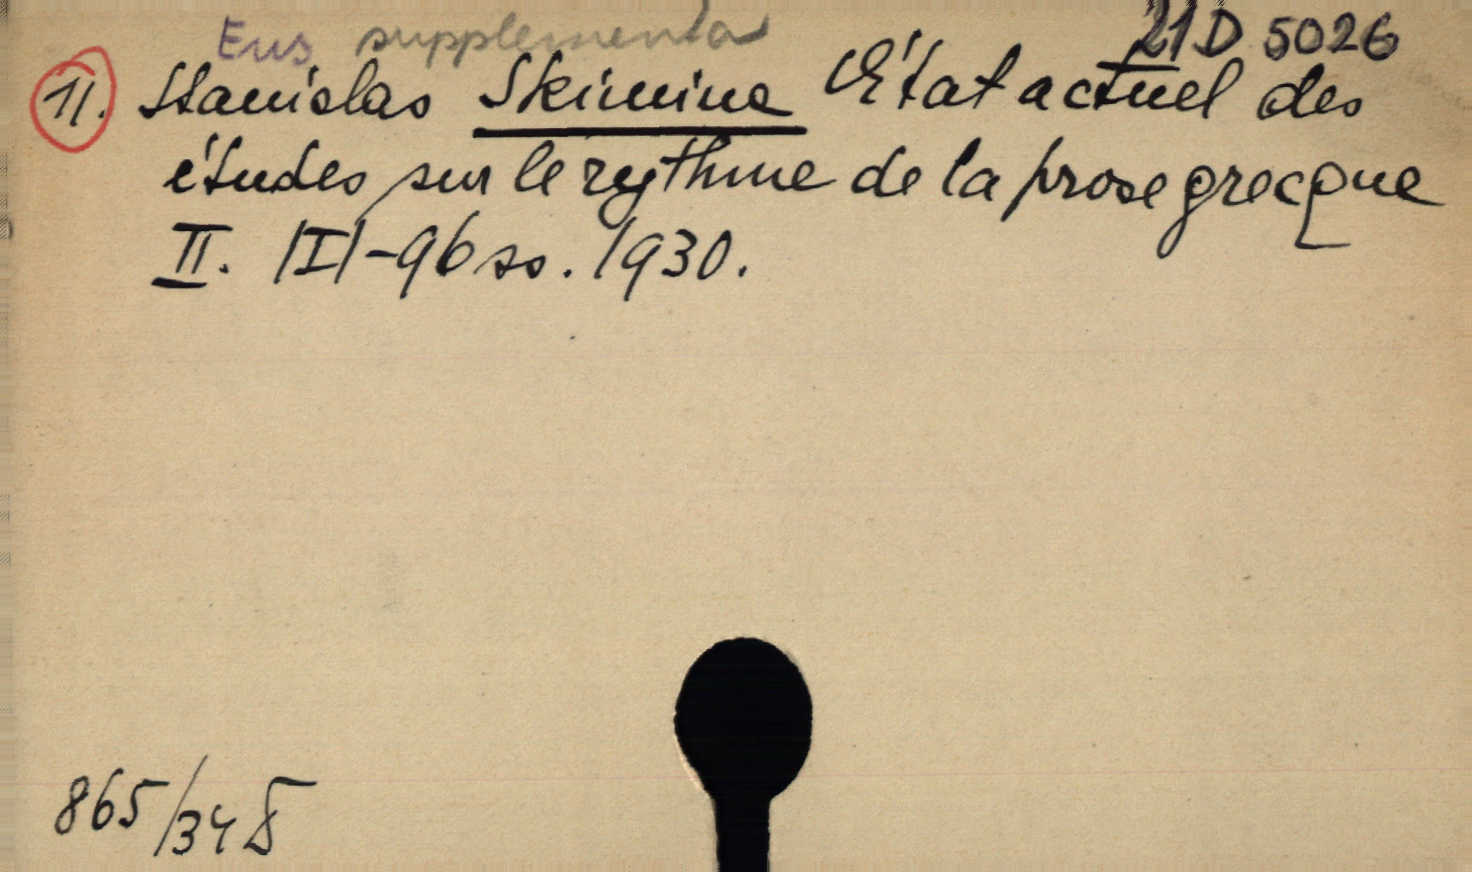 Eus supplementa 21D 5026
11. Stanislas Skimina État actuel des
études sur le rythme de la prose grecque
II. |I|-96 ss. 1930.
865/34